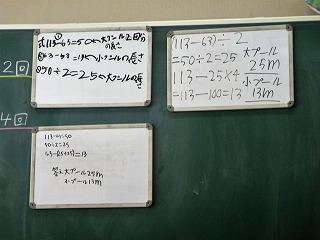 ①
式113-63=50←大プール2回分
の長さ
63-50=13←小プールの長さ
50÷2=25←大プールの長さ
(113-63)÷2
=50÷2=25
大プール
25m
113-25×4
=113-100=13
小プール
13m
2回
4回
113-63=50
50÷2=25
63-(25+25)=13
答え 大プール25m
小プール13m